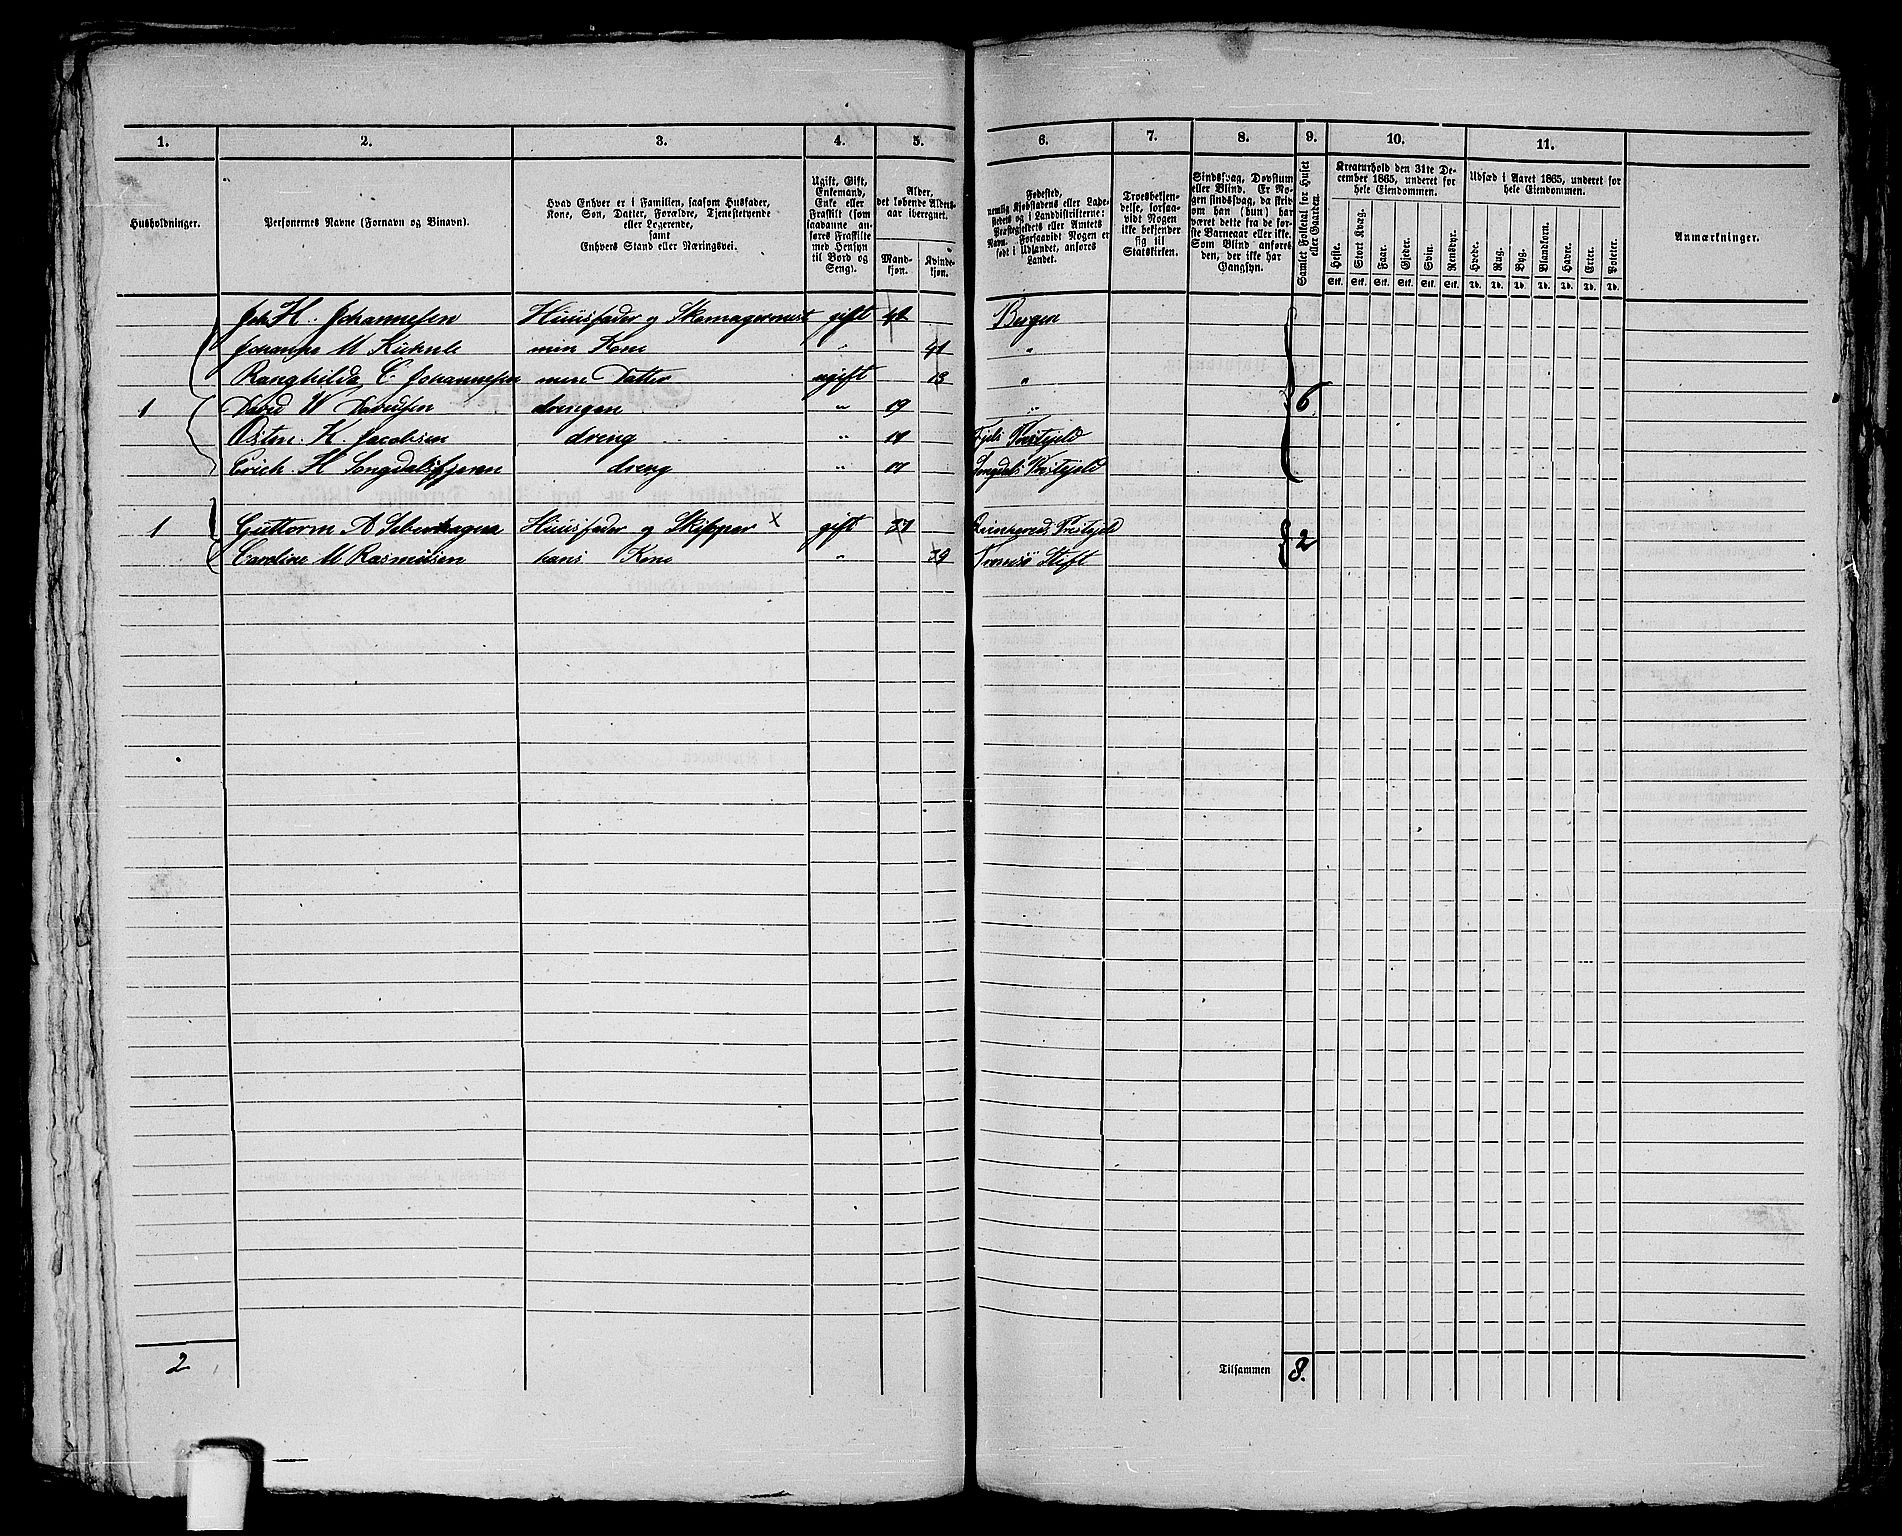 1. 2. 3. 4. 5. 6. 7. 8. 9. 10. 11.
Husholdninger.
Personernes Navne (Fornavn og Binavn).
Hvad Enhver er i Familien, saasom Husfader,
Kone, Søn, Datter, Forældre, Tjenestetyende
eller Logerende,
samt
Enhvers Stand eller Næringsvei.
Ugift, Gift,
Enkemand,
Enke eller
Fraskilt (som
saadanne an-
føres Fraskilte
med Hensyn
til Bord og
Seng).
Alder,
det løbende Alders-
aar iberegnet.
Mand-
kjøn.
Kvinde-
kjøn.
Fødested,
nemlig Kjøbstadens eller Lade-
stedets og i Landdistrikterne:
Præstegjeldets eller Amtets
Navn. Forsaavidt Nogen er
født i Udlandet, anføres
Landet.
Troesbekjen-
delse, forsaa-
vidt Nogen
ikke bekjender
sig til
Statskirken.
Sindssvag, Døvstum
eller Blind. Er No-
gen sindssvag, da skri-
ves om han (hun) har
været dette fra de før-
ste Barneaar eller ikke.
Som Blind anføres
den, der ikke har
Gangsyn.
Samlet Folketal for Huset
eller Gaarden.
Kreaturhold den 31te De-
cember 1865, underet for
hele Eiendommen.
Heste. Stort Kvæg. Faar. Gjeder. Svin. Rensdyr.
Stk. Stk. Stk. Stk. Stk. Stk.
Udsæd i Aaret 1865, underet for
hele Eiendommen.
Hvede. Rug. Byg. Blandkorn. Havre. Erter. Poteter.
Td. Td. Td. Td. Td. Td. Td.
Anmærkninger.
Joh H. Johannesen Huusfader og Skomagermest gift Bergen
Johanne M min Kone " 41 "
Ranghilda C. Johannesen min Datter ugift 13 "
1 David W Davidsen drengen " 19 " 6
Osten K. Jacobsen dreng " Præstejeld
Erich H dreng " Songdals Præstejeld
1 Guttorm A Huusfader og Skipper x gift 37 Præstejeld 2
Caroline M Rasmusen hans Kone " 39 Tromsø Stift
2 Tilsammen 8.